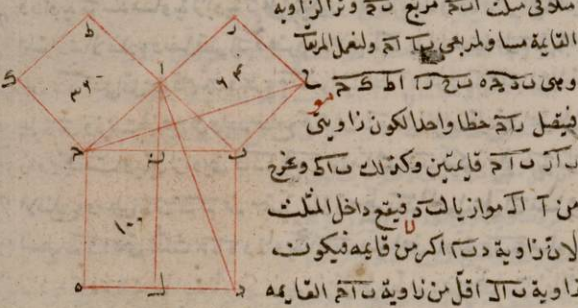 مثلا في مثلث ابج مربع بج وتر الزاوية
القايمة مساو لمربعي با اج ولنعمل المربعات
وهي بدجه بح زا اط كج
فيتصل زاج خطا واحدا لكون زاويتي
باز باج قايمتين وكذلك باط ونخرج
من ا ال موازيا لبد فيقع داخل المثلث
لان زاوية دبا اكبر من قايمه فيكون
زاوية بال اقل من زاوية باج القايمه
ط
ز
ا
ك
ح
٣٦
٦٤
ج
ن
ب
١٠٠
ه
ل
د